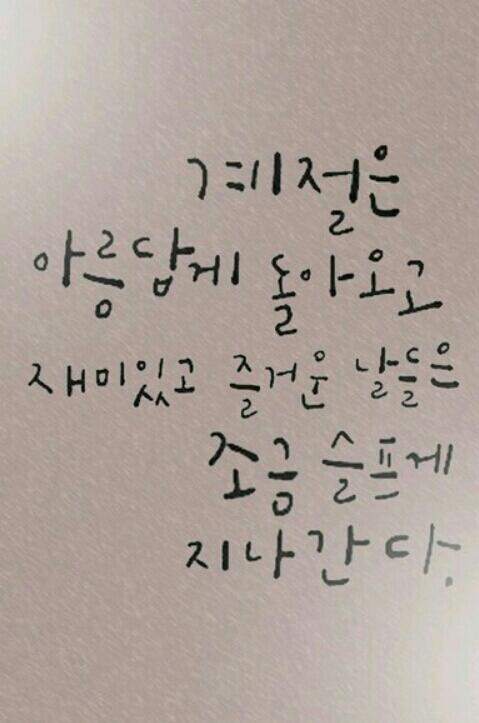 계절은
아름답게 돌아오고
재미있고 즐거운 날들은
조금 슬프게
지나간다.